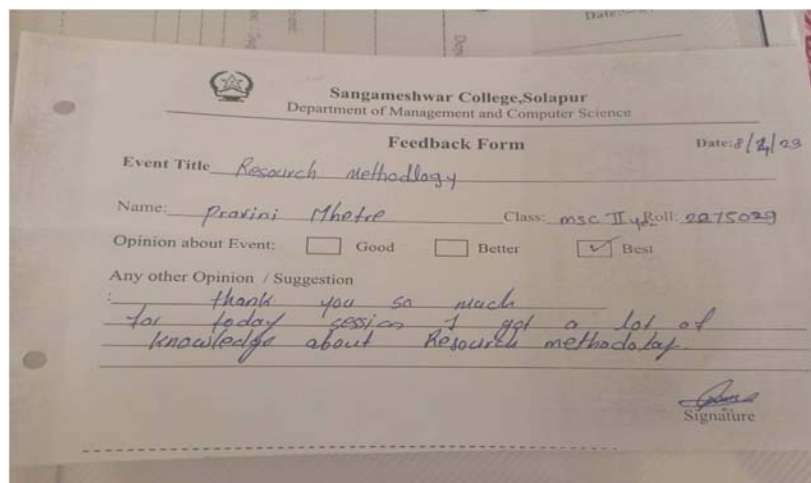 Date:
Sangameshwar College,Solapur
Department of Management and Computer Science
Feedback Form
Date:8/2/23
Event Title Resourch Methodlogy
Name: Pravini Mhetre Class: msc II yr Roll: 2275029
Opinion about Event: Good Better ✓ Best
Any other Opinion / Suggestion
: thank you so much
for today session I got a lot of
knowledge about Resourch methodology
Signature